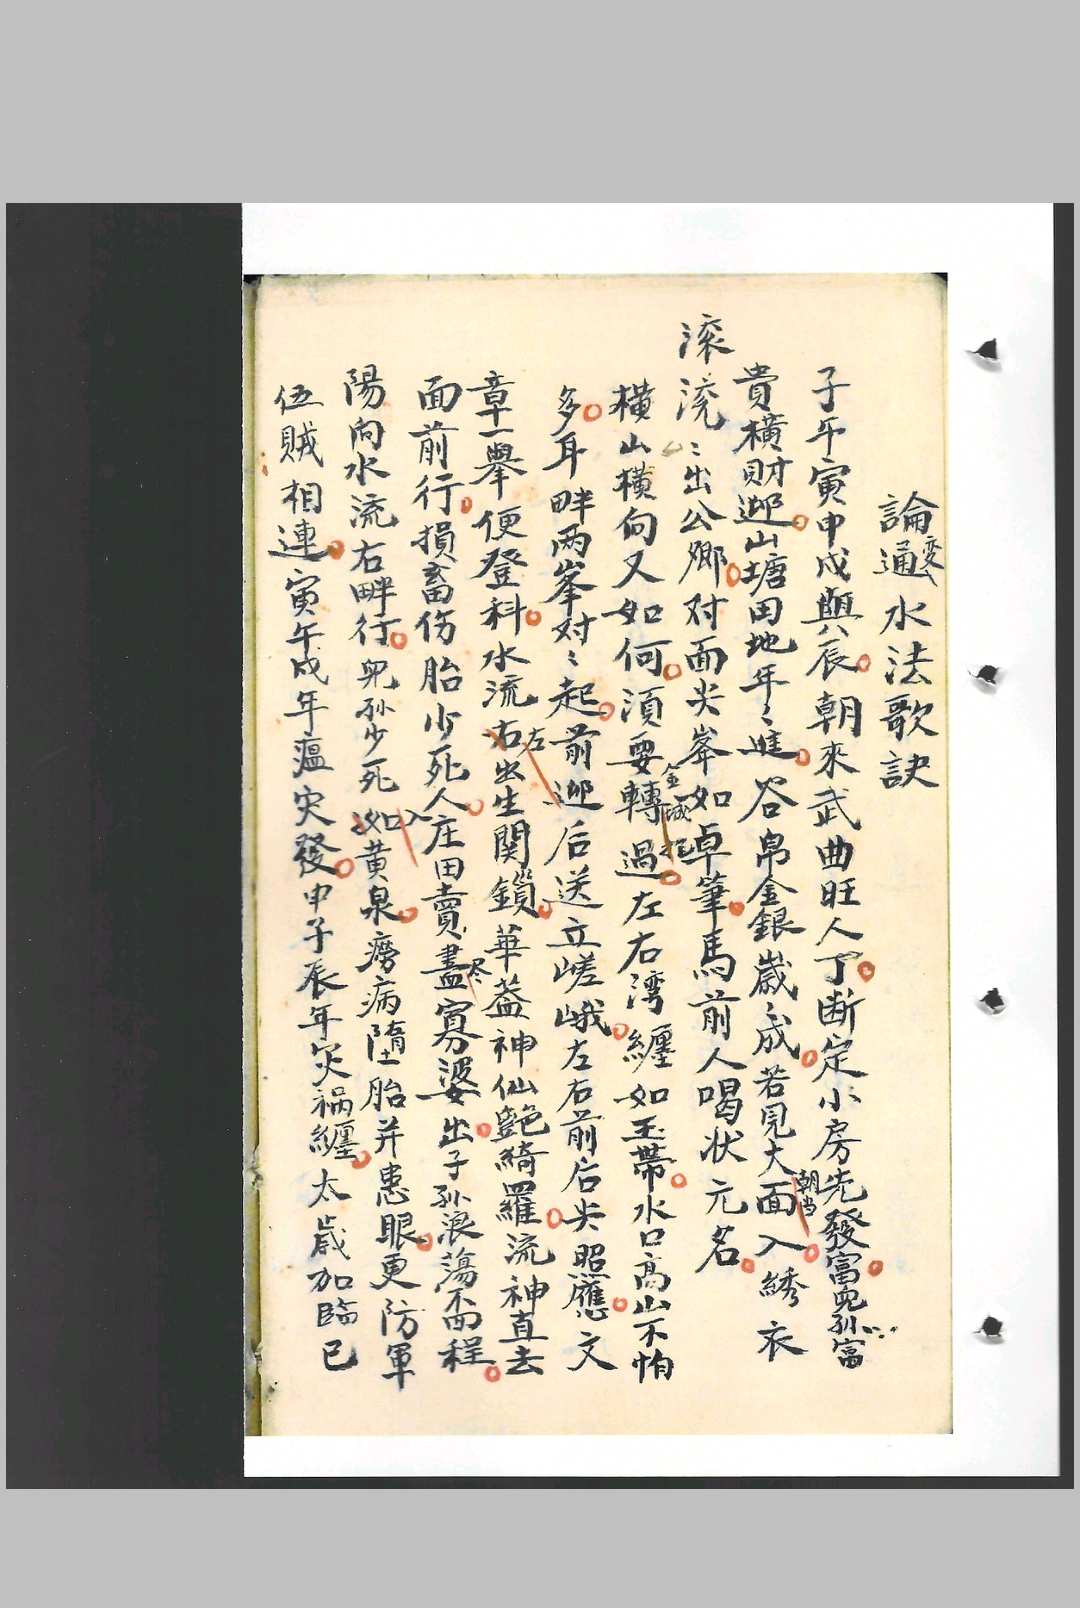 論通变水法歌訣
子午寅申戌與辰朝來武曲旺人丁断定小房先發富児孙富
貴橫財迎山塘田地年〻進谷帛金銀歲〻成若見大面朝当入綉衣
滚流〻出公卿对面尖峯如卓筆馬前人喝状元名
橫山橫向又如何須要轉金城抱過左右湾纏如玉帶水口高山不怕
多耳畔两峯对〻起前迎后送立嵯峨左右前后尖照應文
章一舉便登科水流右左出生関鎖華蓋神仙艶綺羅流神直去
面前行損畜伤胎少死人庄田賣盡尽寡婆出子孙浪蕩不回程
陽向水流右畔行児孙少死如入黄泉癆病墮胎并患眼更防軍
伍賊相連寅午戌年瘟灾發申子辰年灾禍纏太歲加臨已